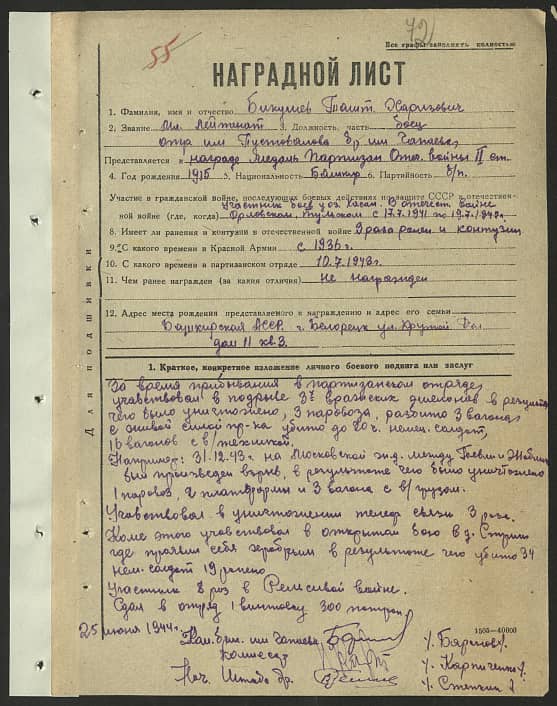 72
55
Все графы заполнять полностью
НАГРАДНОЙ ЛИСТ
1. Фамилия, имя и отчество Бикулиев Ташт. Харизович
2. Звание Мл. Лейтенат 3. Должность, часть Боец
отряд им Пустовалова Бр им Чапаева
Представляется к награде Медаль Партизан Отеч. войны II ст.
4. Год рождения 1915 5. Национальность Башкир 6. Партийность б/п.
Участие в гражданской войне, последующих боевых действиях по защите СССР и отечествен-
ной войне (где, когда) Участник боев у оз. Хасан. В отечест. войне
Орловском, Тульском с 17.7.1941 по 19.7.1942г.
8. Имеет ли ранения и контузии в отечественной войне 3 раза ранен и контузии
9. С какого времени в Красной Армии с 1936 г.
10. С какого времени в партизанском отряде 10.7.1943г.
11. Чем ранее награжден (за какия отличия) не награжден
12. Адрес места рождения представляемого к награждению и адрес его семьи
Башкирская АССР. г. Белорецк ул. Крутой
дом 11 кв 3.
Для подшивки
1. Краткое, конкретное изложение личного боевого подвига или заслуг
За время прибывания в партизанском отряде,
учавствовал в подрыве 3х вражеских эшелонов в результ
чего было уничтожено, 3 паровоза, разбито 3 вагона
с живой силой пр-ка убито до 20 ч. немец. солдат,
16 вагонов с в/техникой.
Например: 31.12.43г. на Московской ж.д. между Тевли и Жабин
был произведен взрыв, в результате чего было уничтожено
1 паровоз, 2 платформы и 3 вагона с в/грузом.
Учавствовал в уничтожении телеф связи 3 раза.
Кроме этого учавствовал в открытом бою в д. Стрии
где проявил себя храбрым в результате чего убито 34
нем. солдат 19 ранено
Участник 2 раз в Рельсивой войне.
Сдал в отряд 1 винтовку 300 патрон
25 июня 1944г.
1505—40000
Ком. Бриг. им Чапаева
Комиссар
Нач. Штаба бр.
/. Баранов /
/. Карпиченко /
/. Степкин /